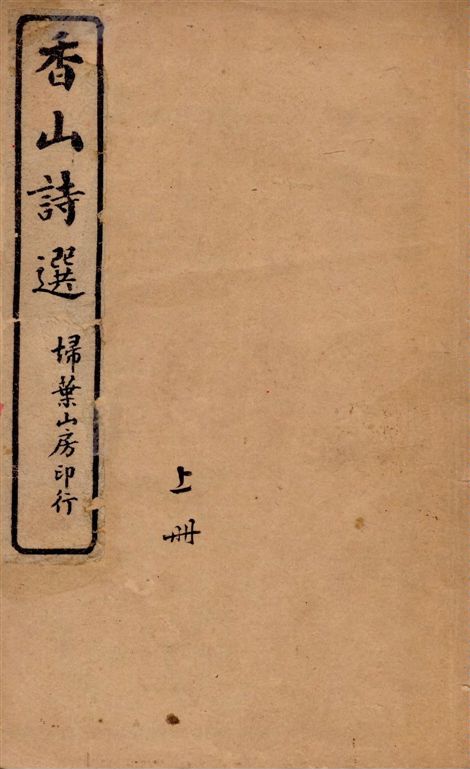 香山詩選
埽葉山房印行
上冊